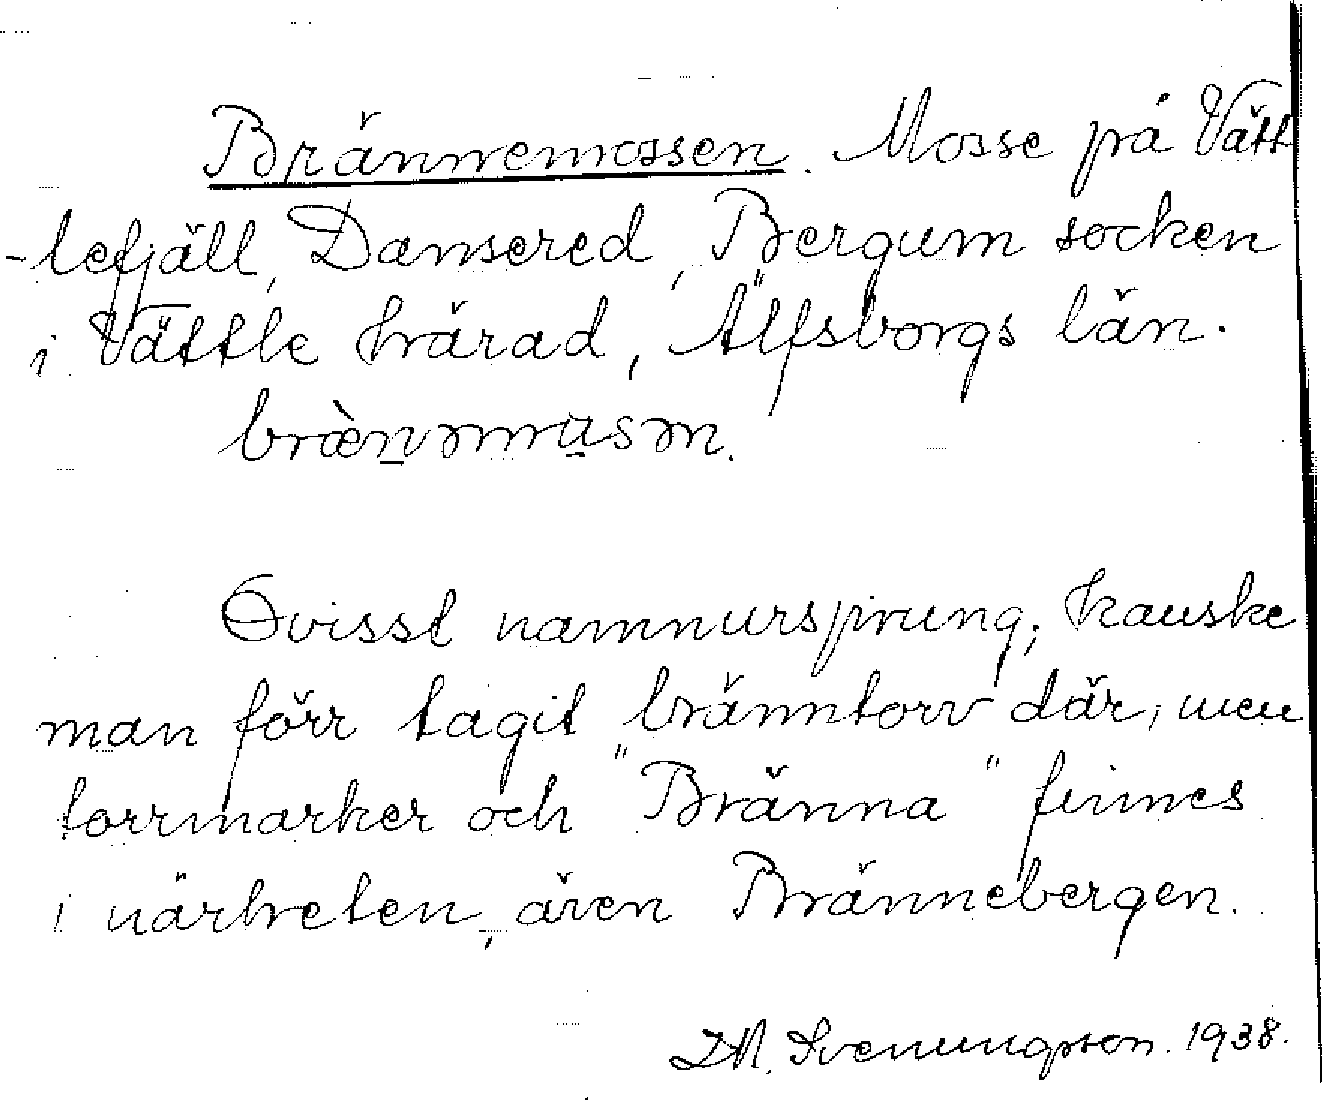 Brännemossen. Mosse på Vätt
-lefjäll, Dansered, Bergum socken
i Vättle härad, Älfsborgs län.
Ovisst namnursprung; kanske
man förr tagit bränntorv där, men
torrmarker och "Bränna" finnes
i närheten, även Brännebergen.
Svenungsson. 1938.